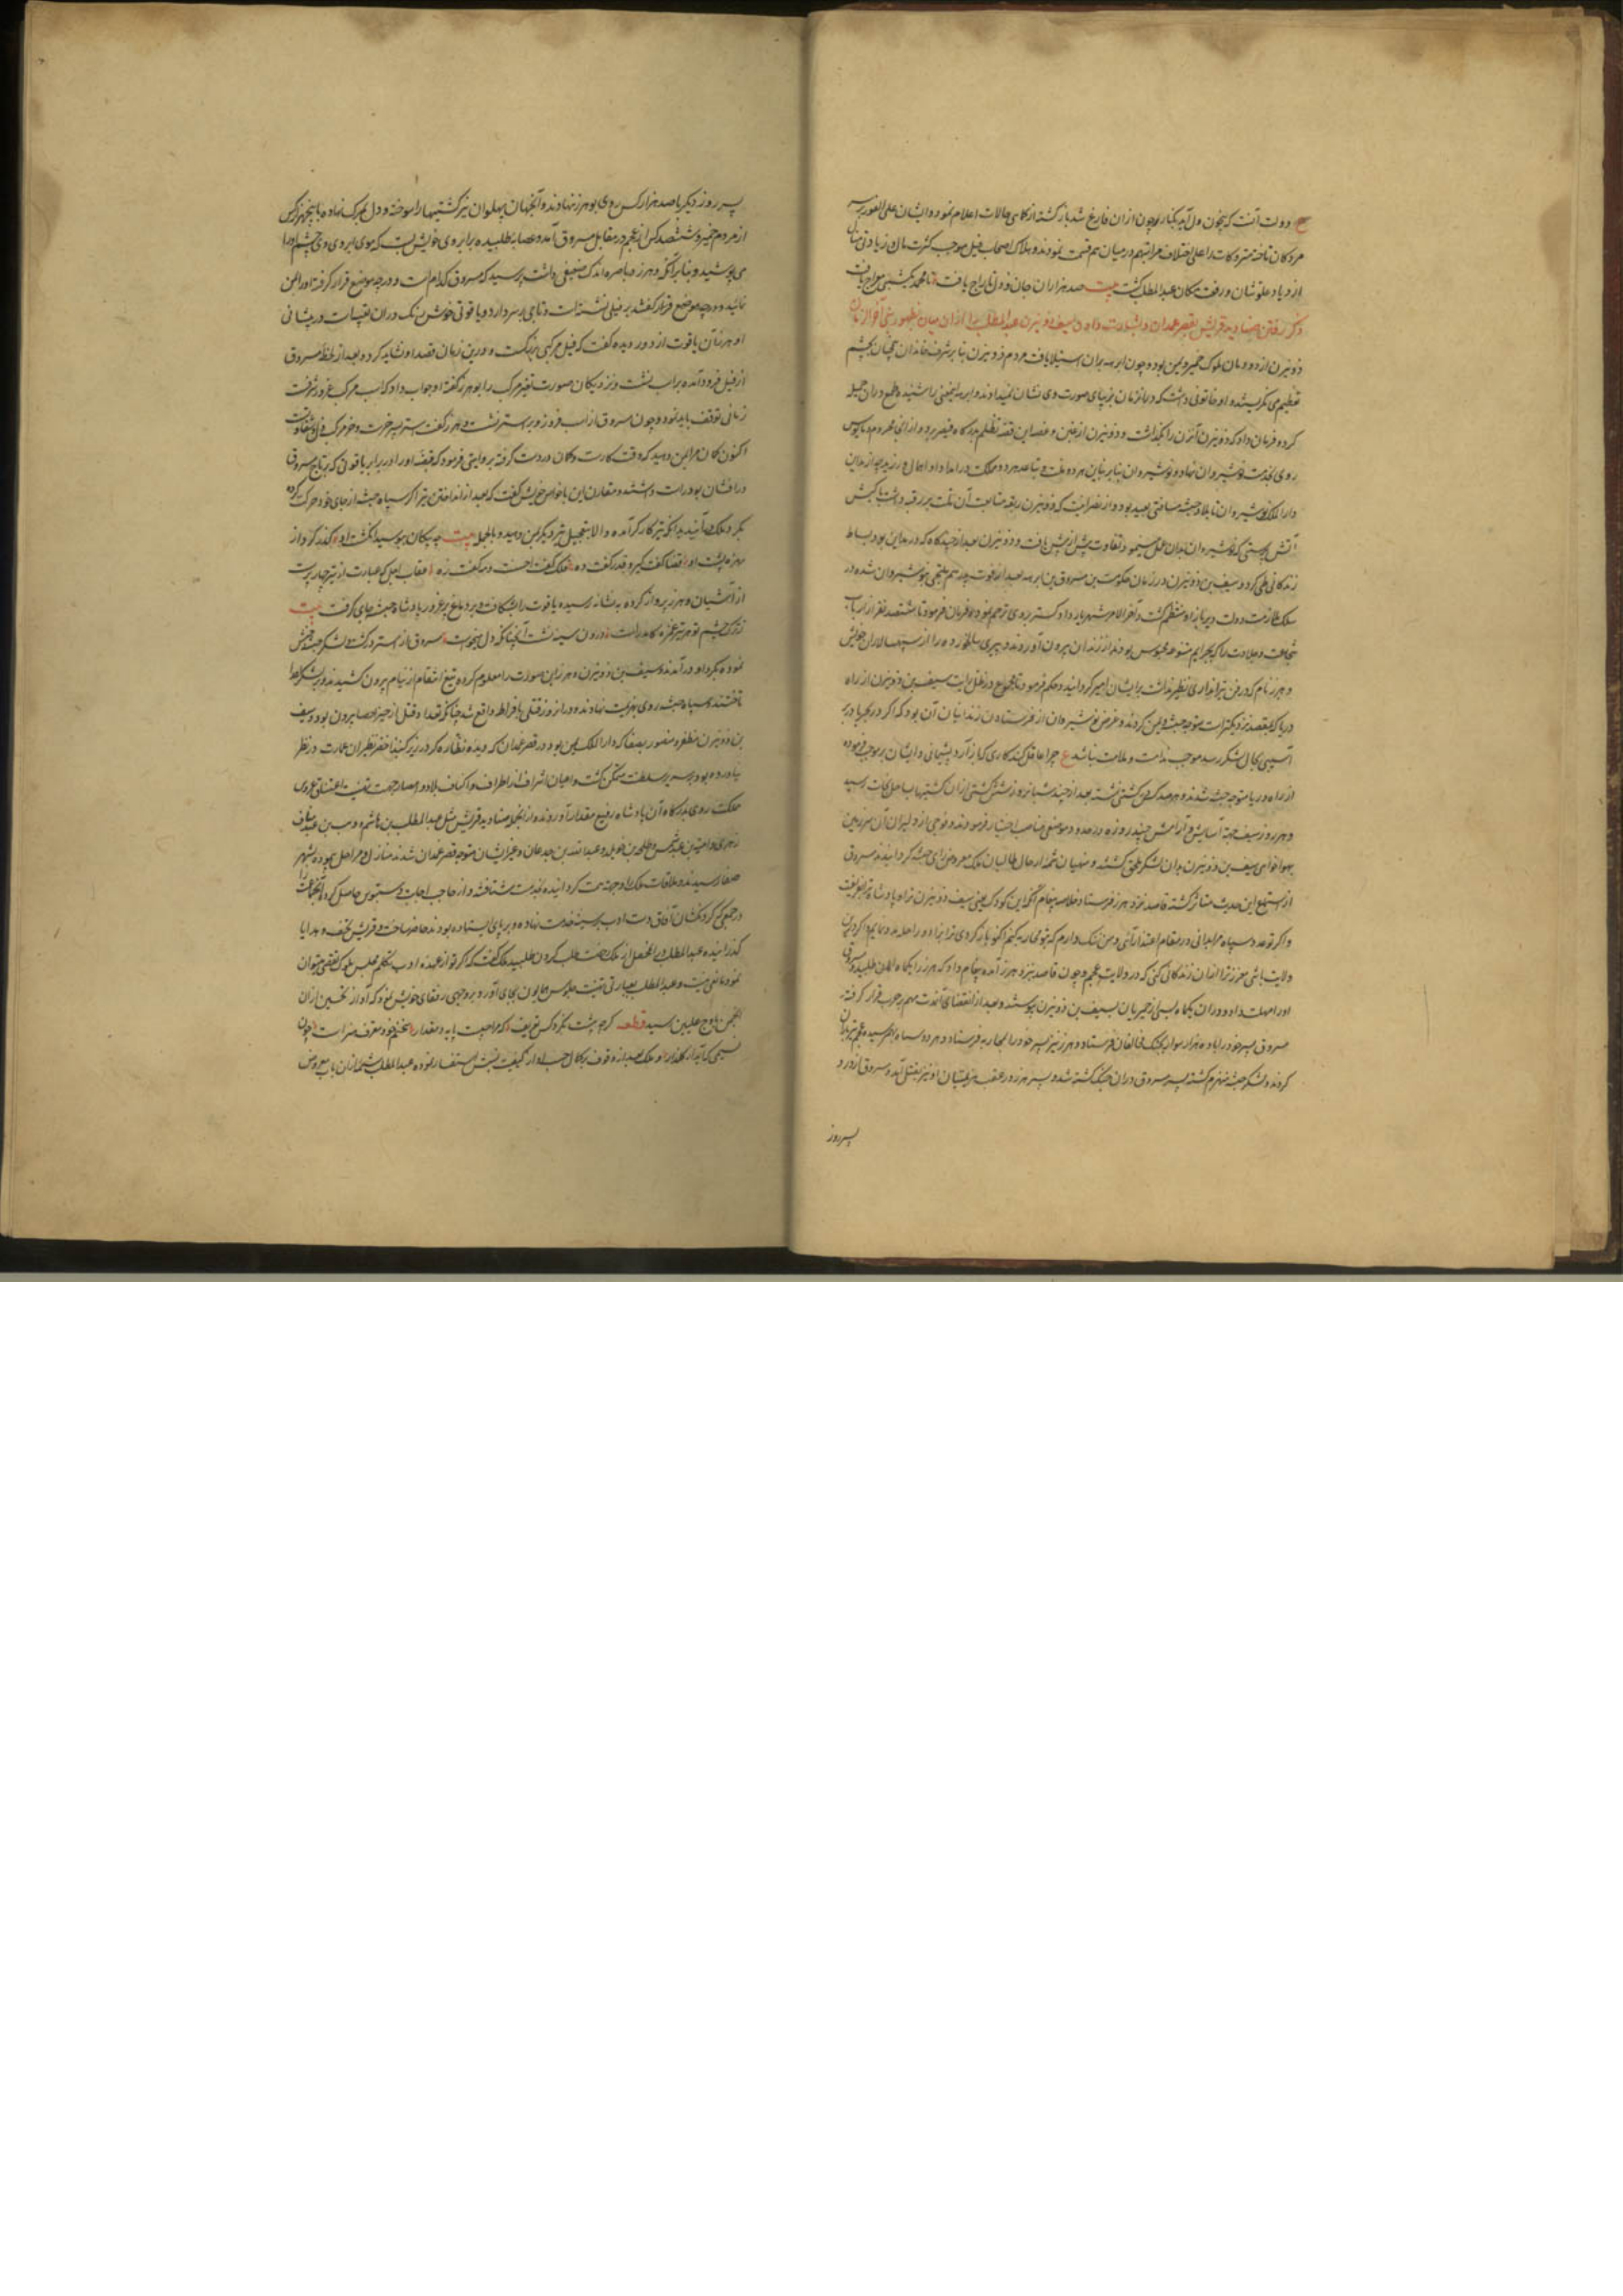 ع دولت آنست که بیخون دل آید بکنار و چون ازان فارغ شد بازگشته از کماهی حالات اعلام نمود و ایشان علی الفور بر سر
مردکان تاخته متروکات را علی اختلاف مراتبهم در میان هم قسمت نمودند و هلاک اصحاب فیل موجب کثرت مال و زیادتی منال
ازدیاد علو شان و رفعت مکان عبد المطلب گشت بیت صد هزاران جان و دل تاراج یافت تا محمد یکشبی معراج یافت
ذکر رفتن صنادید قریش بقصر غمدان و بشارت دادن سیف ذویزن عبد المطلب را ازان میان بظهور نبی آخر الزمان
ذویزن از دودمان ملوک حمیر و یمن بود و چون ابرهه بران استیلا یافت مردم ذویزن بنا بر شرف خاندان بچشم
تعظیم می نگریستند و او خاتونی داشت که دران زمان بزیبائی صورت وی نشان نمیدادند و ابرهه این معنی را شنیده طمع دران جمیله
کرده فرمان داد که ذویزن آن زن را بگذاشت و ذویزن از غبن و غصه این قصه تظلم بدرگاه قیصر برد و از انجا محروم و مایوس
روی بخدمت نوشیروان نهاد و نوشیروان بنا بر تباین هر دو ملت و تباعد هر دو مملکت در امداد او اهمال ورزید چه از مداین
دار الملک نوشیروان تا بلاد حبشه مسافتی بعید بود و از نصرانیت که ذویزن ربقه متابعت آن ملت بر رقبه داشت تا کیش
آتش پرستی که نوشیروان بدان عمل مینمود تفاوت بیش از بیش یافت و ذویزن بعد از چندگاه که در مداین بود بساط
زندگانی طی کرد و سیف بن ذویزن در زمان حکومت مسروق بن ابرهه بعد از فوت پدر هم ملتجی نوشیروان شده در
سلک ملازمت دولت دیرباز او منتظم گشت و آخر الامر شهریار دادگستر بر وی ترحم نموده فرمان فرمود تا ششصد نفر از ارباب
شجاعت و جلادت را که بجرایم متنوعه محبوس بودند از زندان بیرون آوردند و پیری سالخورده را از سپهسالاران خویش
وهرز نام که در فن تیراندازی نظیر نداشت بر ایشان امیر گردانید و حکم فرمود تا مجموع در ظل رایت سیف بن ذویزن از راه
دریا که بمقصد نزدیکتر است متوجه حبشه و یمن گردند و غرض نوشیروان از فرستادن زندانیان آن بود که اگر در بحر یا در بر
آسیبی بحال لشکر رسد موجب ندامت و ملامت نباشد ع چرا عاقل کند کاری که باز آرد پشیمانی و ایشان بر موجب فرموده
از راه دریا متوجه حبشه شدند و هر صد کس در کشتی نشسته بعد از چند شبانروز شش کشتی ازان کشتیها بساحل نجات رسید
وهرز و سیف جهة آسایش و آرامش چند روزه در حدود موضعی مناسب اختیار فرمودند و فوجی از دلیران آن سرزمین
بهواخواهی سیف بن ذویزن بدان لشکر ملحق گشتند و منهیان شمه از حال طالبان ملک معروض رای حبشه گردانیدند مسروق
از استماع این حدیث متاثر گشته قاصد نزد وهرز فرستاد خلاصه پیغام آنکه این کودک یعنی سیف ذویزن ترا و پادشاه ترا فریفت
و اگر تو عدد سپاه مرا بدانی در مقام اعتذار آئی و من ننگ دارم که بتو محاربه کنم اکنون باز گردی ترا زاد و راحله مدد نمایم و اگر درین
ولایت باشی معزز ترا ازان زندگانی کنی که در ولایت عجم و چون قاصد نزد وهرز آمده پیغام داد که وهرز یکماه امان طلبید و مسروق
او را مهلت داد و دران یکماه بسی از حمیریان بسیف بن ذویزن پیوستند و بعد از انقضای آن مدت مهم بر حرب قرار گرفته
مسروق پسر خود را با ده هزار سوار بجنگ مخالفان فرستاد و وهرز نیز پسر خود را بمحاربه فرستاد و هر دو سپاه بهم رسیده عجم تیرباران
کردند و لشکر حبشه منهزم گشته پسر مسروق دران جنگ کشته شد و پسر وهرز در عقب هزیمتیان او نیز بقتل آمد و مسروق از درد
پسر روز
پسر روز دیگر با صد هزار کس روی بوهرز نهادند و آنجهان پهلوان نیز کشتیها را سوخته و دل بمرگ نهاده با پنجهزار کس
از مردم حمیر و ششصد کس از عجم در مقابل مسروق آمد و عصابه طلبیده بر ابروی خویش بست که موی ابروی وی چشم او را
می پوشید و بنا بر آنکه وهرز در باصره اندک ضعفی داشت پرسید که مسروق کدام است و در چه موضع قرار گرفته او را بمن
نمائید و در چه موضع قرار گفتند بر فیلی نشسته است و تاجی بر سر دارد و یاقوتی خوش رنگ دران تعبیه است در پیشانی
او وهرز آن یاقوت از دور دیده گفت که فیل مرکبی بزرگست و درین زمان قصد او نشاید کرد و بعد از لحظه مسروق
از فیل فرود آمده بر اسب نشست و نزدیکان صورت تغیر مرکب را بوهرز گفتند او جواب داد که اسب مرکب عز و شرفست
زمانی توقف باید نمود و چون مسروق از اسب فرود و بر استر نشست وهرز گفت استر پسر خرست و خر مرکب ذل و شقاوت
اکنون کمان مرا بمن دهید که وقت کارست و کمان در دست گرفته بروایتی فرمود که قبضه او را در برابر یاقوتی که بر تاج مسروق
درافشان بود راست داشتند و مقارن این با خواص خویش گفت که بعد از انداختن تیر اگر سپاه حبشه از جای خود حرکت کرده
بگرد ملک آیند بدانکه تیر کارگر آمده و الا بتعجیل تیر دیگر بمن دهید و بالجمله بیت چو پیکان ببوسید انگشت او گذر کرد از
مهره پشت او قضا گفت گیر و قدر گفت ده فلک گفت احسنت و ملک گفت زه عقاب اجل که عبارت از تیر چار پرست
از آشیان وهرز پرواز کرده به نشانه رسیده یاقوت را بشکافت و بر دماغ پر غرور پادشاه حبشه جای گرفت بیت
ز ترک چشم تو هر تیر غمزه کامد راست درون سینه نشست آنچنانکه دل میخواست مسروق از استر در گشت و لشکر حبشه جنبش
نموده بگرد او در آمدند و سیف بن ذویزن و وهرز این صورت را معلوم کرده تیغ انتقام از نیام بیرون کشیدند و بر لشکر اعدا
تاختند و سپاه حبشه روی بهزیمت نهادند و دران روز قتلی بافراط واقع شد چنانکه تعداد قتل از حیز حصا بیرون بود و سیف
بن ذویزن مظفر و منصور بصنعا که دار الملک یمن بود در قصر غمدان که دیده نظاره کرد در زیر گنبد اخضر نظیر ان عمارت در نظر
نیاورده بود بر سریر سلطنت متمکن گشت و اعیان اشراف از اطراف و اکناف بلاد و امصار جهت تهنیت اعتناق عروس
مملکت روی بدرگاه آن پادشاه رفیع مقدار آوردند و از انجمله صنادید قریش مثل عبد المطلب بن هاشم و وهب بن عبد مناف
زهری و امیة بن عبد شمس و طلحه بن خویلد و عبد الله بن جدعان و غیر ایشان متوجه قصر غمدان شدند منازل و مراحل پیموده بشهر
صنعا رسیدند و ملاقات ملک را وجهه همت گردانیده بخدمت شتافتند و از حاجب اجابت دستبوس حاصل کرده آنجماعت را
در جمعی که گردنکشان آفاق دست ادب بر سینه خدمت نهاده و بر پای ایستاده بودند حاضر ساخت و قریش تحف و هدایا
گذرانیده عبد المطلب در المحفل از ملک رخصت طلب کردن طلبید ملک گفت که اگر تو از عهده ادب تکلم مجلس ملوک تفصی میتوان
نمود مانعی نیست و عبد المطلب بعبارتی تهنیت جلوس همایون بجای آورد بر وجهی رفقای خویش نمود که آواز تحسین ازان
انجمن باوج علیین رسید قطعه کرم بشناسد نکرد کس تعریف که مراحبست پایه و مقدار سخنم خود معرف هنر است چون
نسیمی که آید از گلزار و ملک بعد از وقوف بر کمال حسب او از کیفیت نسبش استفسار نموده عبد المطلب شمه ازان باب معروض